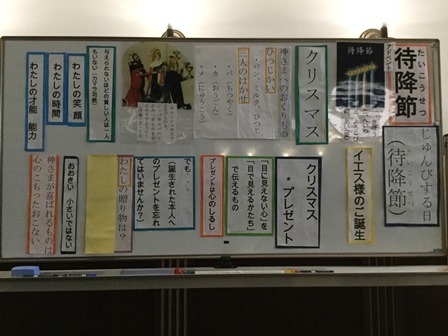 たいこうせつ
待降節
アドベント
待降節
じゅんびする日
(待降節)
たいこうせつ
イエス様のご誕生
クリスマス
神さまへのおくりもの
ひつじかい
・パン、ミルク、ひつじ
三人のはかせ
・バ(もつやく)
・カ(おうごん)
・メ(にゅうこう)
クリスマス
*プレゼント
「目に見えない心」を
「目で見えるかたち」
で伝えるもの
プレゼントは心のしるし
でも・・・
(誕生された本人へ
のプレゼントを忘れ
てはいませんか?)
わたしの贈り物は?
与えられないほどの貧しい人は一人
もいない(カマラ司教)
わたしの笑顔
わたしの時間
わたしの才能 能力
おおきい 小さいではない
神さまが喜ばれるものは
心のこもったおこない